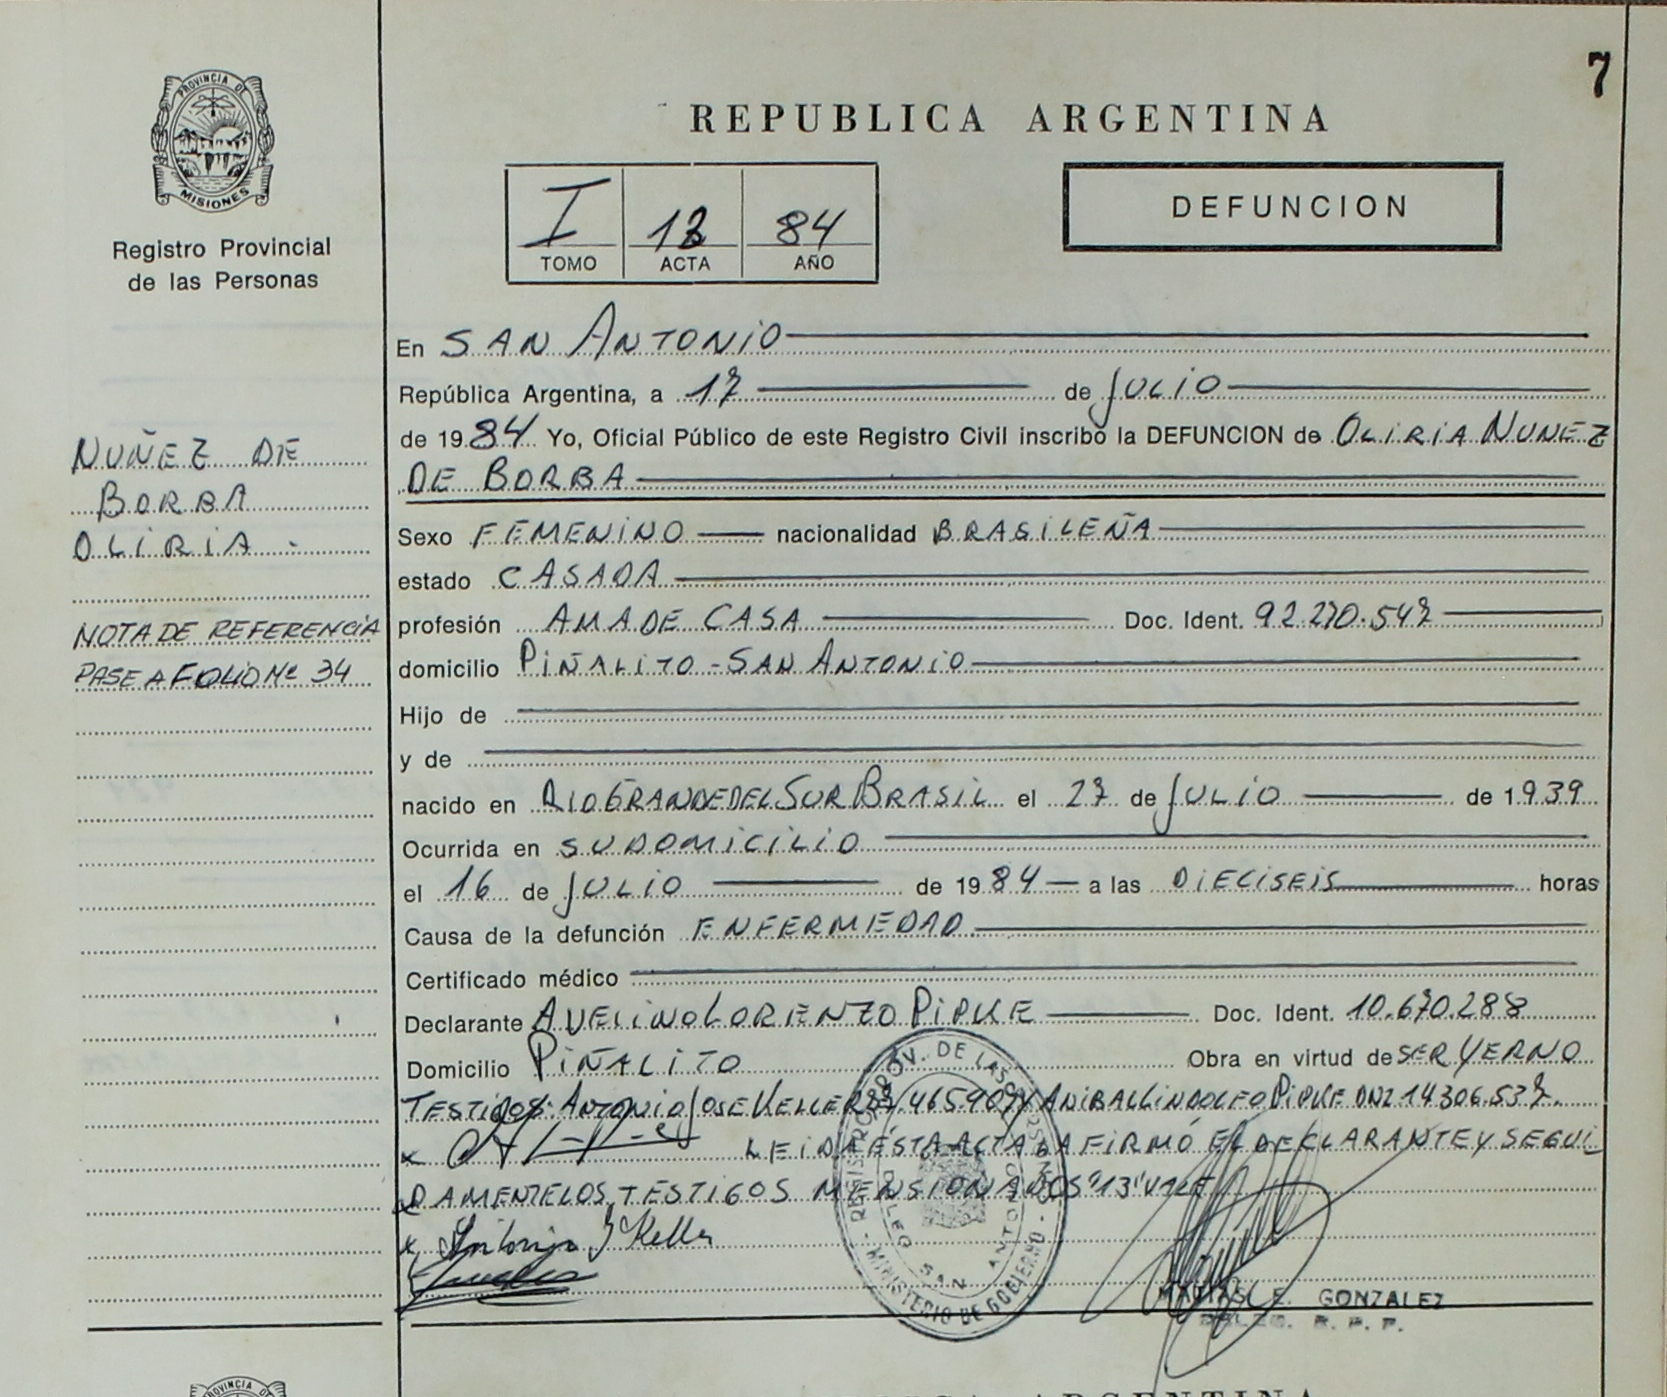 7
PROVINCIA DE
MISIONES
Registro Provincial
de las Personas
REPUBLICA ARGENTINA
I 13 84
TOMO ACTA AÑO
DEFUNCION
NUÑEZ DE
BORBA
OLIRIA -
NOTA DE REFERENCIA
PASE A FOLIO Nº 34
En SAN ANTONIO
República Argentina, a 17 de JULIO
de 1984 Yo, Oficial Público de este Registro Civil inscribo la DEFUNCION de OLIRIA NUNEZ
DE BORBA
Sexo FEMENINO nacionalidad BRASILEÑA
estado CASADA
profesión AMA DE CASA Doc. Ident. 92.270.547
domicilio PIÑALITO - SAN ANTONIO
Hijo de
y de
nacido en RIO GRANDE DEL SUR BRASIL el 27 de JULIO de 1939
Ocurrida en SU DOMICILIO
el 16 de JULIO de 1984 a las DIECISEIS horas
Causa de la defunción ENFERMEDAD
Certificado médico
Declarante AVELINO LORENZO PIPKE Doc. Ident. 10.670.288
Domicilio PIÑALITO Obra en virtud de SER YERNO
TESTIGOS: ANTONIO JOSE KELLER Y ANIBAL LINDOLFO PIPKE DNI 14306.537.
x LEIDA ÉSTA ACTA LA FIRMÓ EL DECLARANTE Y SEGUI
DAMENTE LOS TESTIGOS MENSIONADOS "13" VALE
x Antonio J Keller
PROV. DE LAS PERSONAS
MINISTERIO DE GOBIERNO
SAN ANTONIO
MATIAS E. GONZALEZ
DELEG. R. P. P.
ARGENTINA